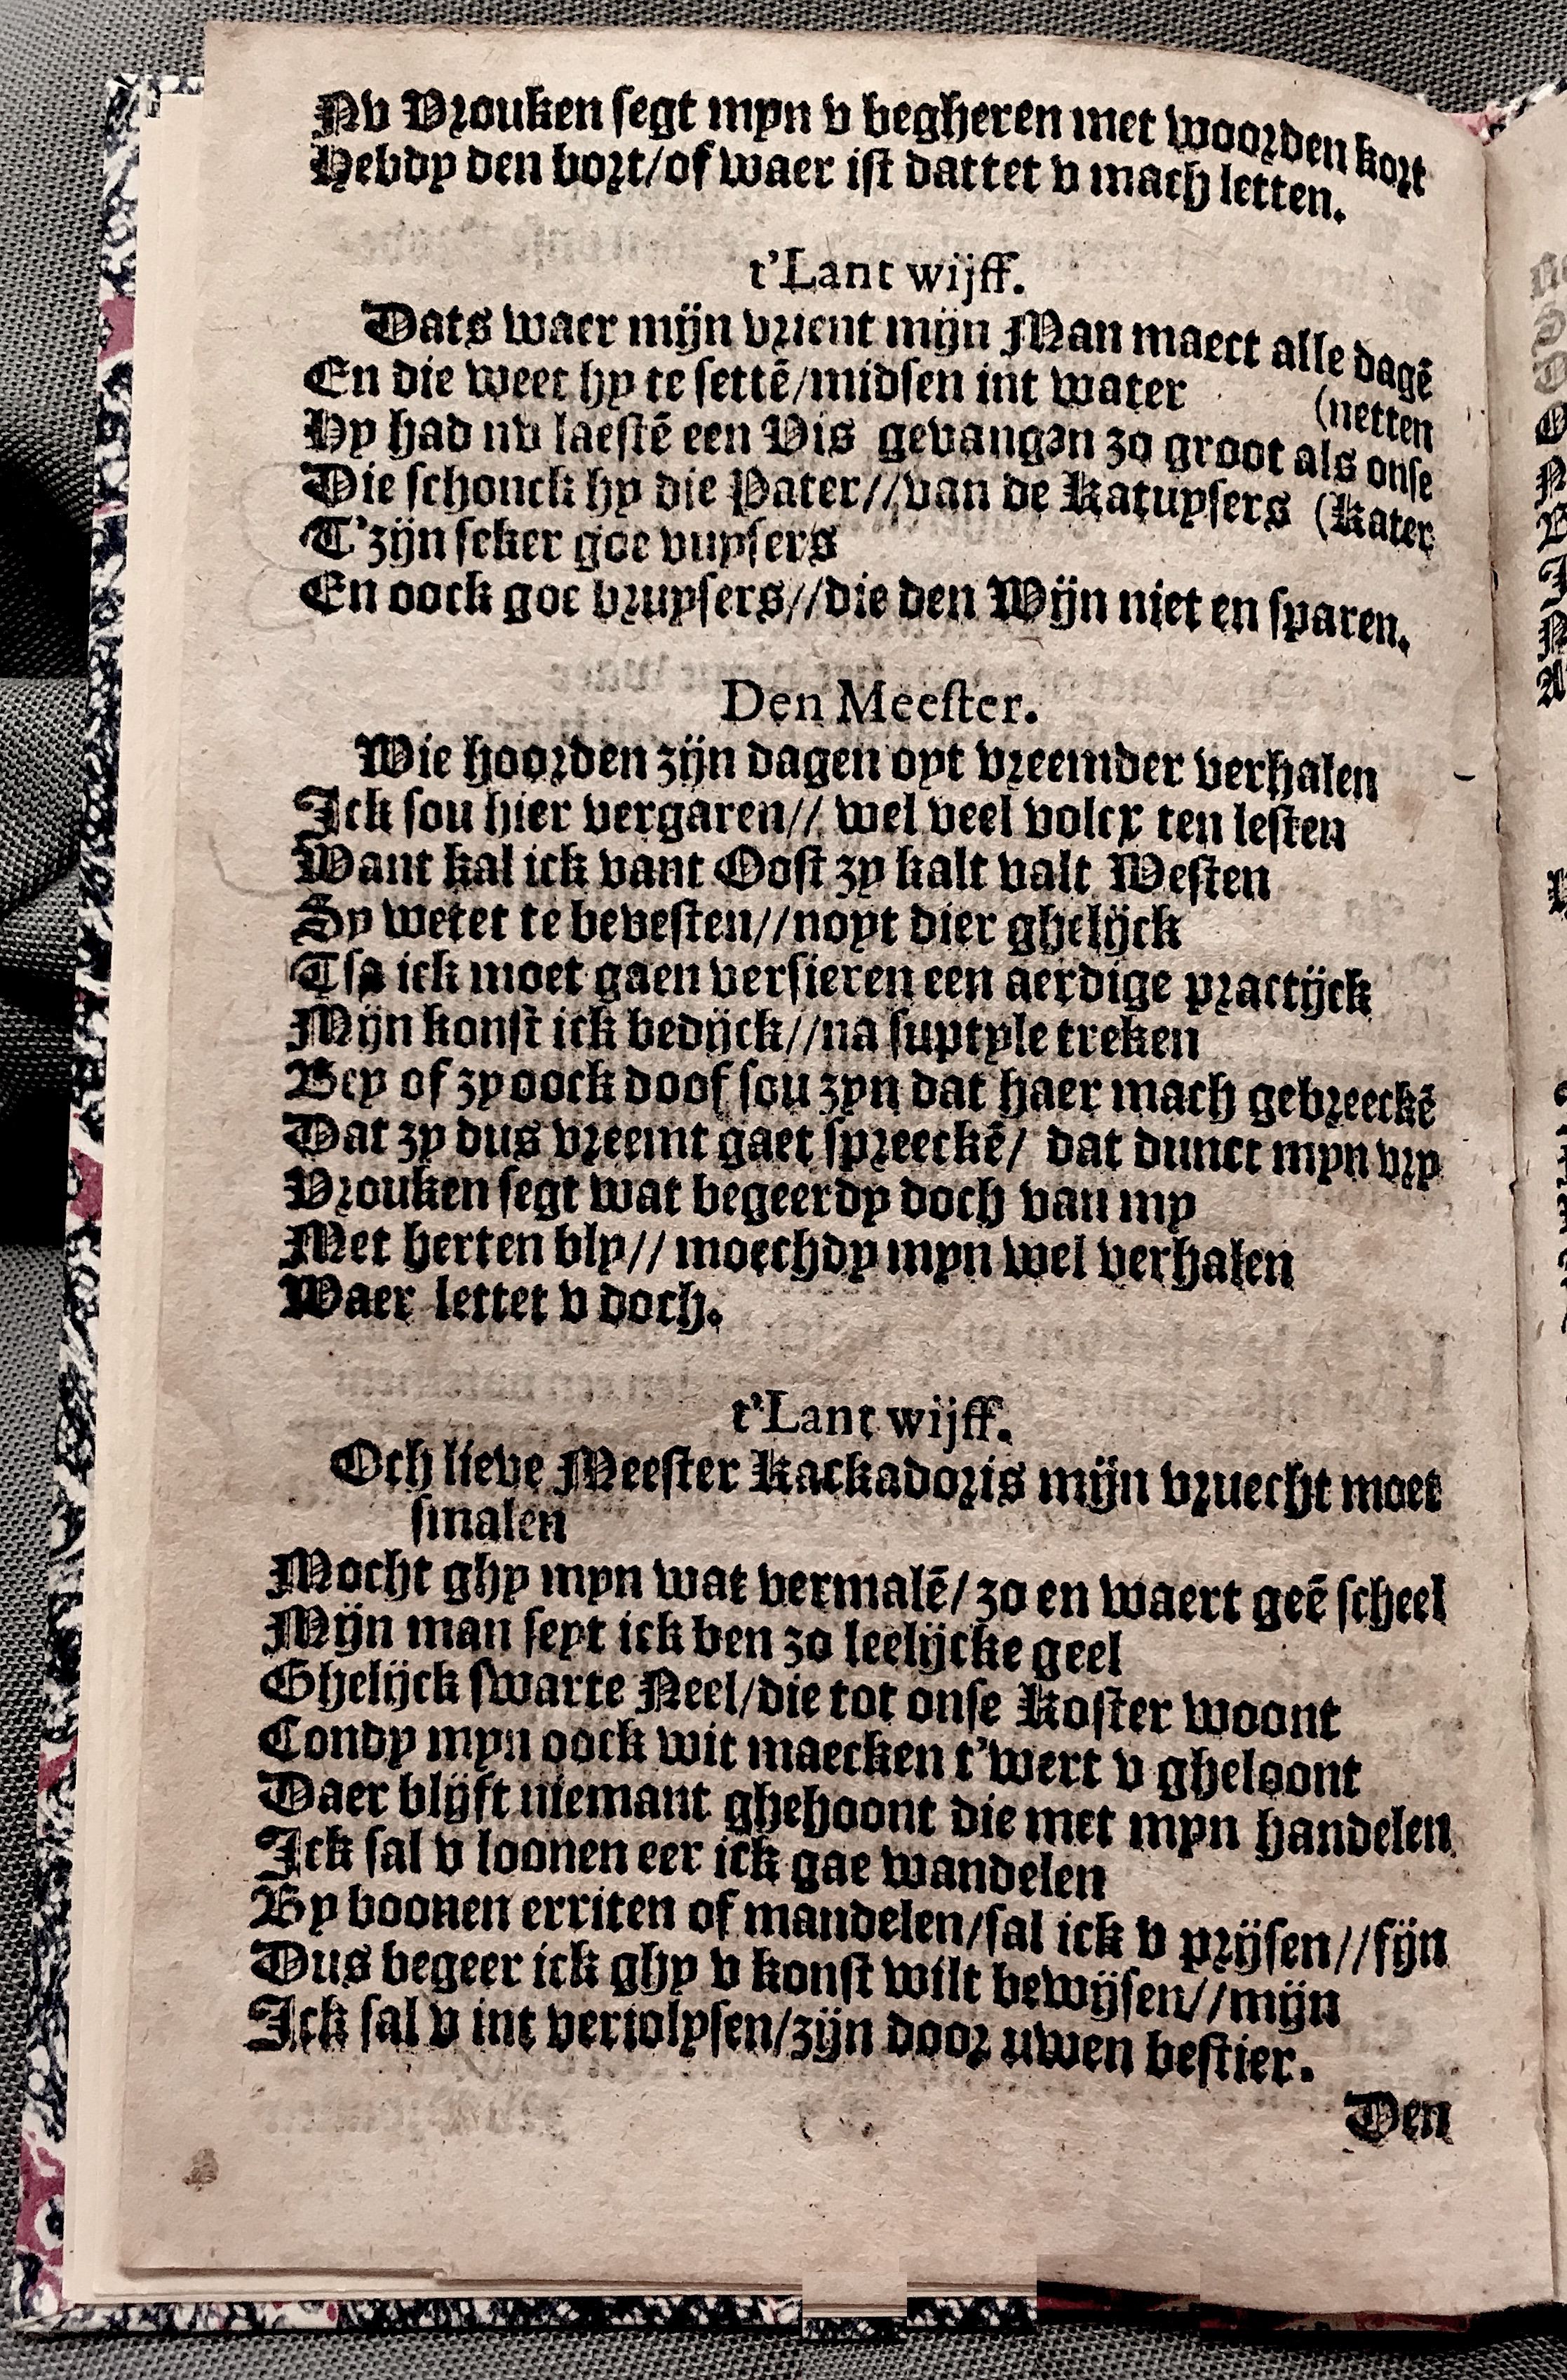 Nv Vrouken segt mpn v begheren met woorden kort
Hebdy den bort/of waer ist dattet v mach letten.
t'Lant wijff.
Dats waer mijn vrient mijn Man maect alle dagē
En die weet hy te settē/midsen int water (netten
Hy had nv laestē een Vis gevangen zo groot als onse
Die schonck hy die Pater//van de Katuysers (Kater
T'zijn seker goe vuysers
En oock goe bruysers//die den Wijn niet en sparen.
Den Meester.
Wie hoorden zijn dagen oyt vreemder verhalen
Ick sou hier vergaren// wel veel volcx ten lesten
Want kal ick vant Oost zy kalt valt Westen
Sy wetet te bevesten//noyt dier ghelijck
Tsa ick moet gaen versieren een aerdige practijck
Mijn konst ick bedijck//na suptyle treken
Bey of zy oock doof sou zyn dat haer mach gebreeckē
Dat zy dus vreemt gaet spreeckē/ dat dunct myn vry
Vrouken segt wat begeerdy doch van my
Met herten bly// moechdy myn wel verhalen
Waer lettet v doch.
t'Lant wijff.
Och lieve Meester Kackadoris mijn vruecht moet
smalen
Mocht ghy myn wat vermalē/ zo en waert geē scheel
Mijn man seyt ick ben zo leelijcke geel
Ghelijck swarte Neel/die tot onse Koster woont
Condy myn oock wit maecken t'wert v gheloont
Daer blijft niemant ghehoont die met myn handelen
Ick sal v loonen eer ick gae wandelen
By boonen erriten of mandelen/sal ick v prijsen//fijn
Dus begeer ick ghy v konst wilt bewijsen//mijn
Ick sal v int veriolysen/zijn door uwen bestier.
Den